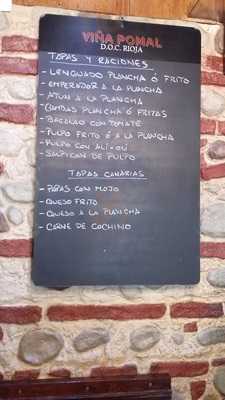 VIÑA POMAL
D.O.C. RIOJA
TAPAS Y RACIONES
- LENGUADO PLANCHA Ó FRITO
- EMPERADOR A LA PLANCHA
- ATUN A LA PLANCHA
- GAMBAS PLANCHA Ó FRITAS
- BACALAO CON TOMATE
- PULPO FRITO Ó A LA PLANCHA
- PULPO CON ALI-OLI
- SALPICON DE PULPO
TAPAS CANARIAS
- PAPAS CON MOJO
- QUESO FRITO
- QUESO A LA PLANCHA
- CARNE DE COCHINO